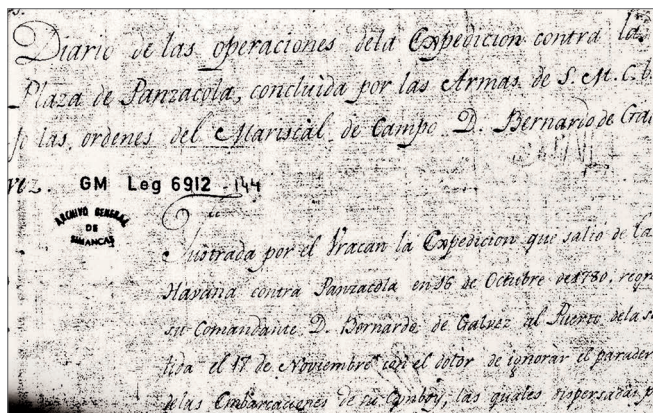 Diario de las operaciones dela Expedicion contra la
Plaza de Panzacola, concluida por las Armas de S. M. C. b
jo las ordenes del Mariscal de Campo D. Bernardo de Gal
vez.
GM Leg 6912 - 144
ARCHIVO GENERAL
DE
SIMANCAS
Frustrada por el Vracan la Expedicion que salió de la
Havana contra Panzacola en 16 de Octubre de 1780. regre
su Comandante D. Bernardo de Galvez al Puerto dela sa
lida el 17 de Noviembre con el dolor de ignorar el parader
delas Embarcaciones de su Comboy, las quales dispersadas p